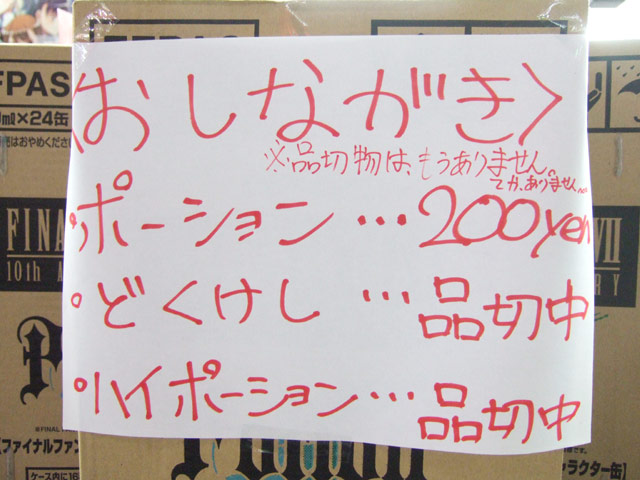 FFPAS
〈おしながき〉
ml×24缶
はおやめくださ
※品切物は、もうありません。
てか、ありません。
・ポーション…200yen
FINA
VII
10th A
RY
・どくけし…品切中
・ハイポーション…品切中
※FINAL
【ファイナルファン
Potion
ラクター缶】
ケース内に16